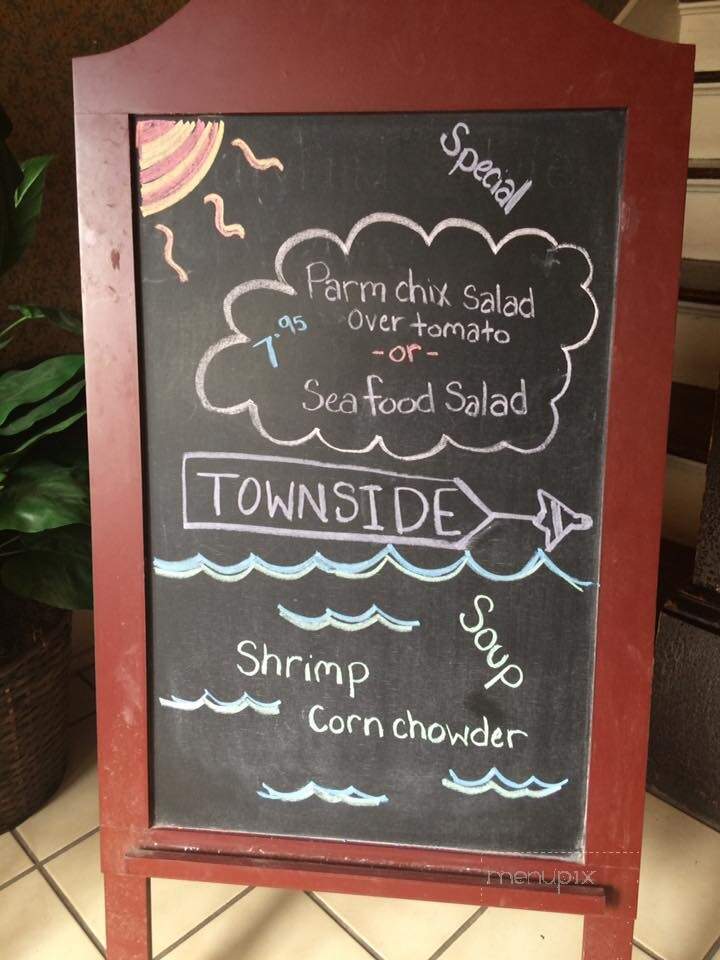 Special
Parm chix Salad
Over tomato
7.95
-or-
Seafood Salad
TOWNSIDE
Soup
Shrimp
Corn chowder
menupix